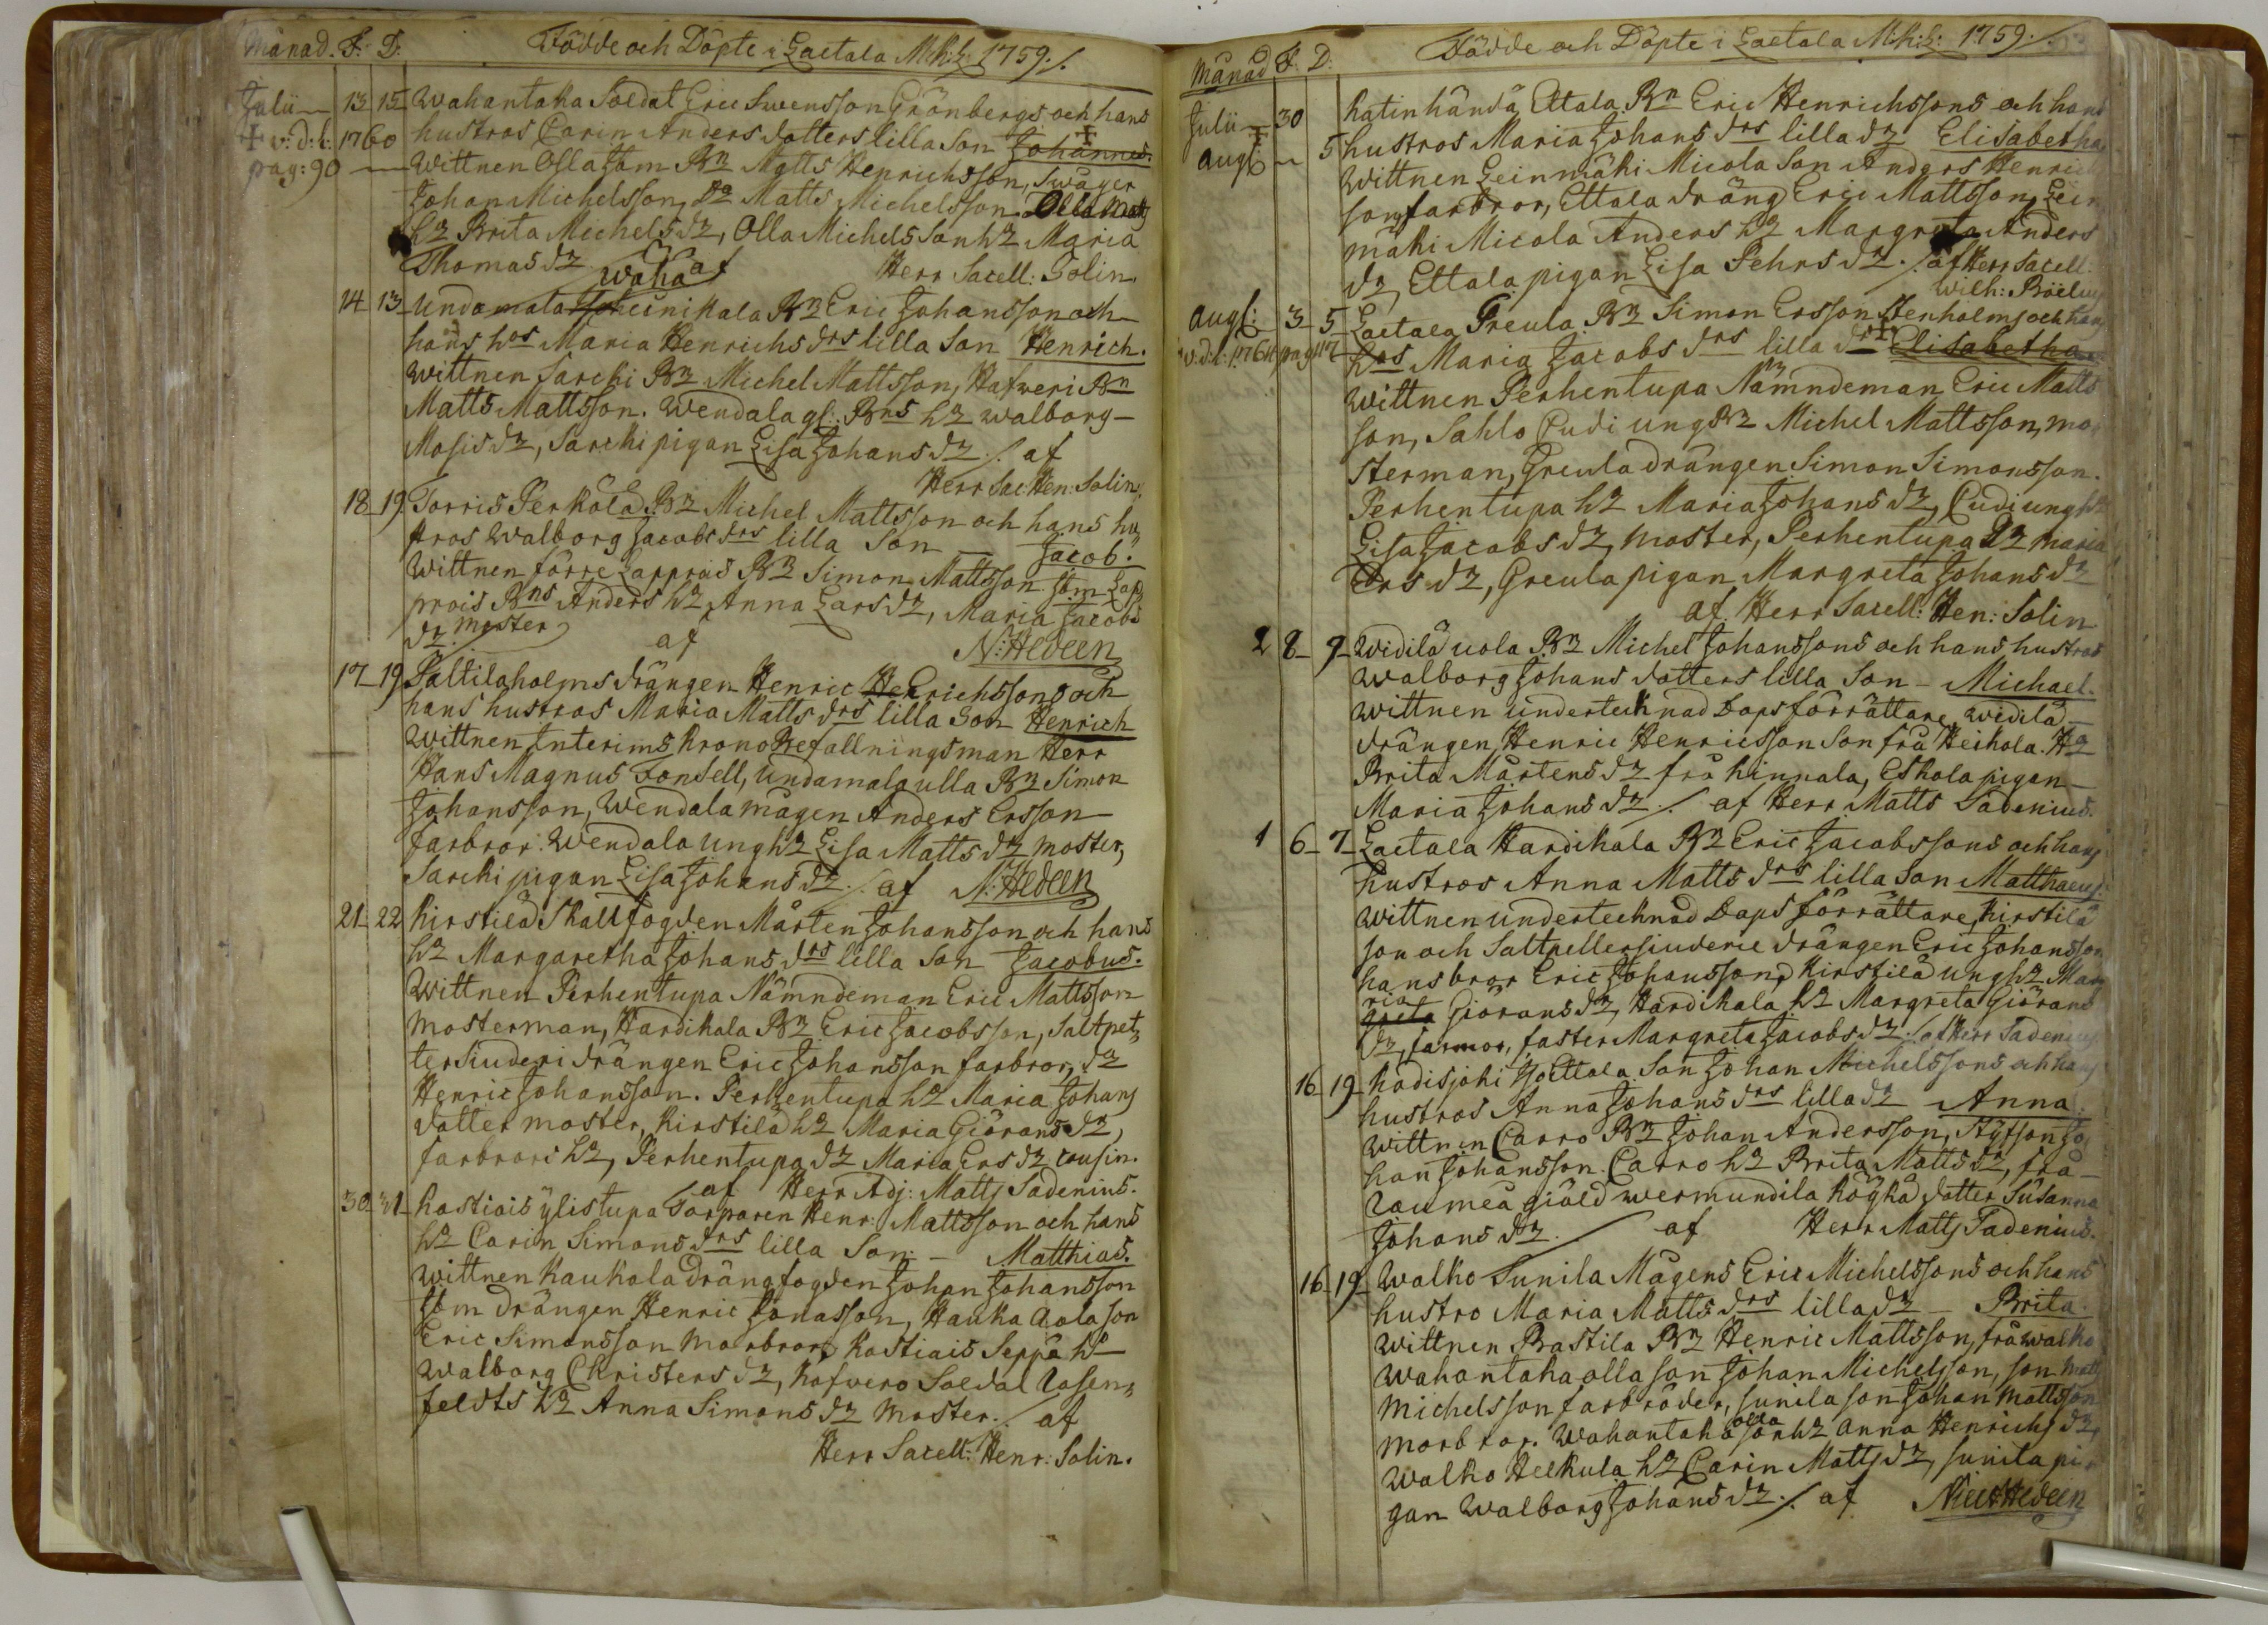 Månad. F: D: Födde och Döpte i Laetala M:K:L: 1759./.
Julii 13 15 Wahantaka Soldat Eric Swensson Grönbergs och hans
+ v: d: l: 1760 hustros Carin Anders dotters lilla Son Johannes.
pag: 90 Wittnen Olla Jam Bn Matts Henrichsson, Swåger
Johan Michelsson, Do Matts Michelsson. Olla Matts
h: Brita Michels dr, Olla Michels Son h: Maria
Thomas dr. af Herr Sacell: Solin.
waha
14 13 Undamala Junikala Bn Eric Johansson och
hans hos Maria Henrichs drs lilla Son Henrich.
Wittnen Sarchi Bn Michel Mattsson, Hafveri Bn
Matts Mattsson. Wendala gl: Bns h: Walborg
Mosis dr, Sarchi pigan Lisa Johans dr ./. af
Herr Sac: Hen: Solin,
18 19 Torris Perkola Bn Michel Mattsson och hans hu
stros Walborg Jacobs drs lilla Son Jacob.
Wittnen förre Lapprais Bn Simon Mattsson Jom Lap
prais Bns Anders h: Anna Lars dr, Maria Jacobs
dr moster af N: Hedeen
17 19 Paltilaholms drängen Henric Henrichssons och
hans hustros Maria Matts drs lilla Son Henrich
Wittnen Interims Krono Befallningsman Herr
Hans Magnus Fonsell, Undamala ulla Bn Simon
Johansson, Wendala mågen Anders Ersson
farbror. Wendala ung h: Lisa Matts dr moster,
Sarchi pigan Lisa Johans dr ./. af N: Hedeen
21 22 Kirstilä Skallfogden Mårten Johansson och hans
h: Margaretha Johans drs lilla Son Jacobus.
Wittnen Perhentupa Nämndeman Eric Mattsson
mosterman, Hardikala Bn Eric Jacobsson, Saltpet
tersiuderi drängen Eric Johansson farbror, do
Henric Johansson. Perhentupa h: Maria Johans
dotter moster, Kirstilä h: Maria Giörans dr,
farbrors h:, Perhentupa dr Maria Ers dr cousin.
af Herr Adj: Matts Sadenius.
30 31 Kastiais ylistupa Torparen Henr: Mattsson och hans
h: Carin Simons drs lilla Son Matthias.
Wittnen Kaukola drängfogden Johan Johansson
Jom drängen Henric Jonasson, Hauka Aola son
Eric Simonsson morbror, Kastiais Seppä h:
Walborg Christers dr, Kafvero Soldat Rosen
feldts h: Anna Simons dr moster ./. af
Herr Sacell: Henr: Solin.
Månad F: D: Födde och Döpte i Laetala M:K:L: 1759./.
Julii 30 Katinhändä Ettala Bn Eric Henrichssons och hans
Augt 5 hustros Maria Johans drs lilla dr Elisabetha
Wittnen Leinmäki Micola Son Anders Henrich
son farbror, Ettala dräng Eric Mattsson, Lein
mäki Micola Anders h: Margreta Anders
dr, Ettala pigan Lisa Pehrs dr ./. af Herr Sacell.
Wilh: Böelius
Augt: 3 5 Laetala Greula Bn Simon Ersson Stenholms och hans
v: d: l: 1761 pag 117 hos Maria Jacobs drs lilla dr Elisabetha
Wittnen Perhentupa Nämndeman Eric Matts
son, Sahlo Cudi ung Bn Michel Mattsson, mo
sterman, Greula drängen Simon Simonsson.
Perhentupa h: Maria Johans dr, Cudi ung h:
Lisa Jacobs dr, moster, Perhentupa dr Maria
Ers dr, Greula pigan Margreta Johans dr
af Herr Sacell: Hen: Solin
2 8 9 Widilä uola Bn Michel Johanssons och hans hustros
Walborg Johans dotters lilla Son Michael.
Wittnen undertecknad Dopsförrättare, Widilä
drängen Henric Henricsson Son frå Heikola. H:
Brita Mårtens dr frå hinnala, Eskola pigan
Maria Johans dr ./. af Herr Matts Sadenius.
1 6 7 Laetala Hardikala Bn Eric Jacobssons och hans
hustros Anna Matts drs lilla Son Matthaeus.
Wittnen undertecknad Dops förrättare, Kirstilä
son och Saltpettersiuderie drängen Eric Johansson
hans bror Eric Johansson, Kirstilä ung h: Mar
ria
greta Giörans dr, Hardikala h: Margreta Giörans
dr, farmor, faster Margreta Jacobs dr ./. af Herr Sadenius
16 19 Kodisjoki Yoettala Son Johan Michelssons och hans
hustros Anna Johans drs lilla dr Anna
Wittnen Carro Bn Johan Andersson, Styfson Jo
han Johansson. Carro h: Brita Matts dr, frå
Raumea giäld Wermundila Kögkä dotter Susanna
Johans dr. af Herr Matts Sadenius.
16 19 Walko Sunila Mågens Eric Michelssons och hans
hustro Maria Matts drs lilla dr Brita.
Wittnen Bastila Bn Henric Mattsson, frå walko
Wahantaka olla son Johan Michelsson, son Matts
Michelsson farbröder, Sunila son Johan Mattsson
morbror. Wahantaka olla son h: Anna Henrichs dr,
Walko Heikula h: Carin Matts dr, Sunila pi
gan Walborg Johans dr ./. af Nic: Hedeen